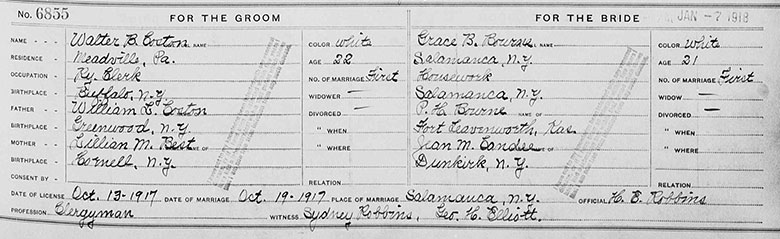 No. 6855 FOR THE GROOM FOR THE BRIDE JAN -7 1918
NAME Walter B. Cotton FULL NAME COLOR White Grace B. Bourne FULL NAME COLOR White
RESIDENCE Meadville, Pa. AGE 22 Salamanca, N.Y. AGE 21
OCCUPATION Ry. Clerk NO. OF MARRIAGE First Housework NO. OF MARRIAGE First
BIRTHPLACE Buffalo, N.Y. WIDOWER — Salamanca, N.Y. WIDOW —
FATHER William L. Cotton DIVORCED — P. H. Bourne NAME OF DIVORCED —
BIRTHPLACE Greenwood, N.Y. " WHEN Fort Leavenworth, Kas. " WHEN
MOTHER Lillian M. Best NAME OF " WHERE Jean M. Candee NAME OF " WHERE
BIRTHPLACE Hornell, N.Y. Dunkirk, N.Y.
CONSENT BY RELATION RELATION
DATE OF LICENSE Oct. 13-1917 DATE OF MARRIAGE Oct. 19-1917 PLACE OF MARRIAGE Salamanca, N.Y. OFFICIAL H. E. Robbins
PROFESSION Clergyman WITNESS Sydney Robbins, Geo. H. Elliott.